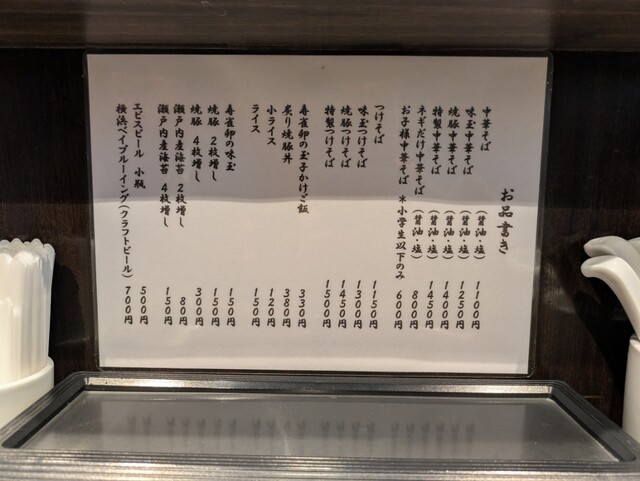 お品書き
中華そば (醤油・塩) 1100円
味玉中華そば (醤油・塩) 1250円
焼豚中華そば (醤油・塩) 1400円
特製中華そば (醤油・塩) 1450円
ネギだけ中華そば (醤油・塩) 800円
お子様中華そば *小学生以下のみ 600円
つけそば 1150円
味玉つけそば 1300円
焼豚つけそば 1450円
特製つけそば 1500円
寿雀卵の玉子かけご飯 330円
炙り焼豚丼 380円
小ライス 120円
ライス 150円
寿雀卵の味玉 150円
焼豚 2枚増し 150円
焼豚 4枚増し 300円
瀬戸内産海苔 2枚増し 80円
瀬戸内産海苔 4枚増し 150円
エビスビール 小瓶 500円
横浜ベイブルーイング(クラフトビール) 700円